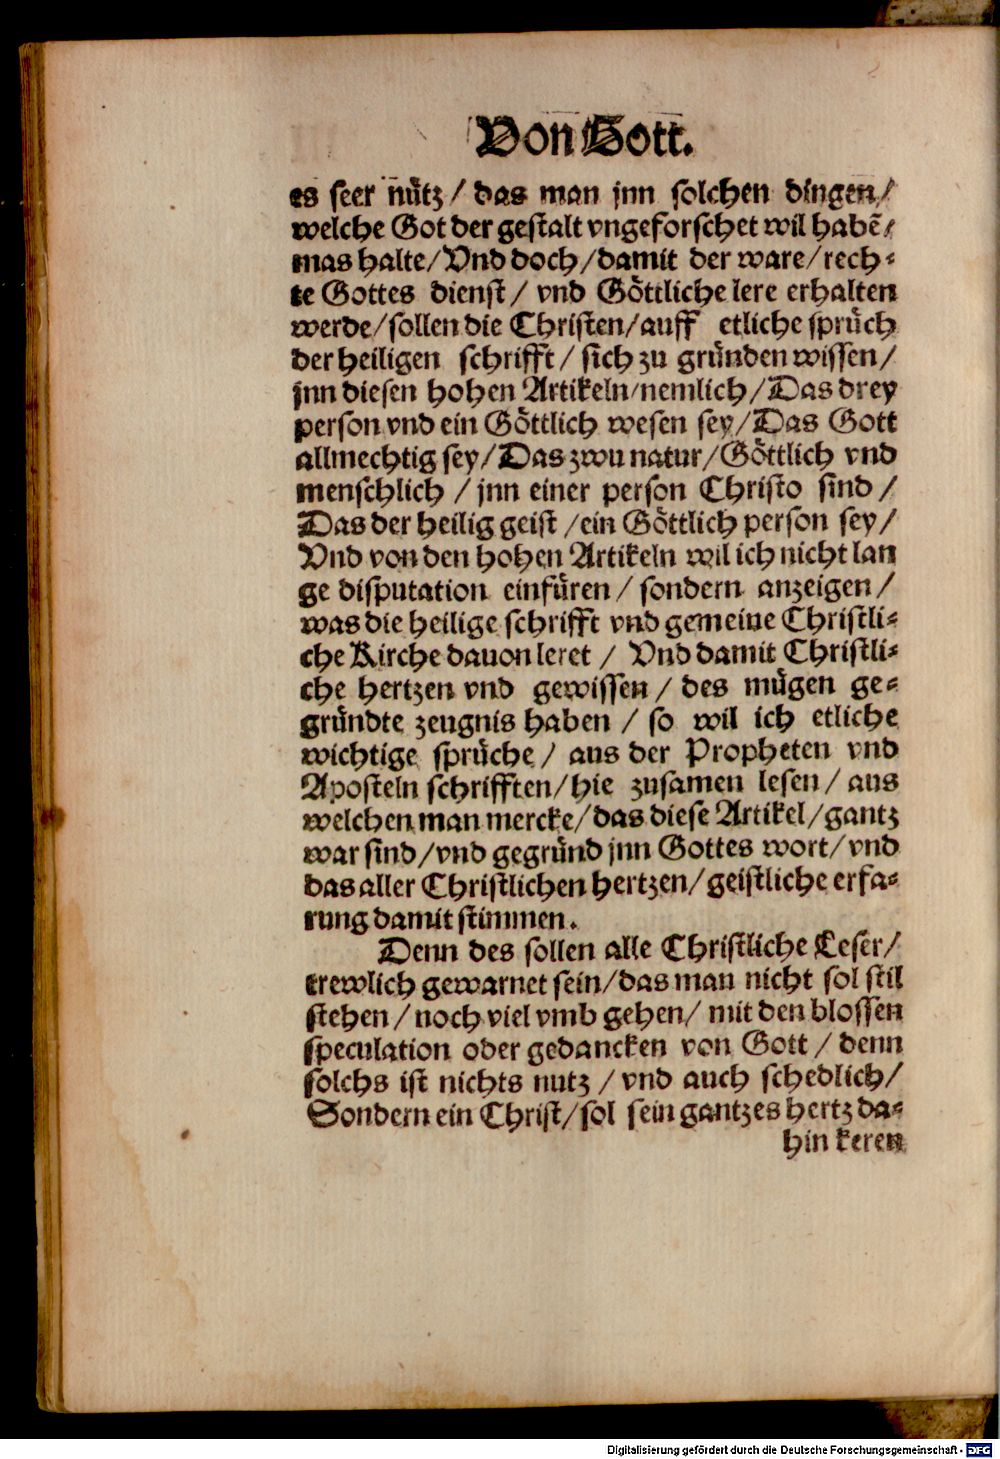 Von Gott.
es seer nütz / das man jnn solchen dingen /
welche Got der gestalt vngeforschet wil habẽ /
mas halte / Vnd doch / damit der ware / rech-
te Gottes dienst / vnd Göttliche lere erhalten
werde / sollen die Christen / auff etliche sprüch
der heiligen schrifft / sich zu gründen wissen /
jnn diesen hohen Artikeln / nemlich / Das drey
person vnd ein Göttlich wesen sey / Das Gott
allmechtig sey / Das zwu natur / Göttlich vnd
menschlich / jnn einer person Christo sind /
Das der heilig geist / ein Göttlich person sey /
Vnd von den hohen Artikeln wil ich nicht lan
ge disputation einfüren / sondern anzeigen /
was die heilige schrifft vnd gemeine Christli-
che Kirche dauon leret / Vnd damit Christli-
che hertzen vnd gewissen / des mügen ge-
gründte zeugnis haben / so wil ich etliche
wichtige sprüche / aus der Propheten vnd
Aposteln schrifften / hie zusamen lesen / aus
welchen man mercke / das diese Artikel / gantz
war sind / vnd gegründ jnn Gottes wort / vnd
das aller Christlichen hertzen / geistliche erfa-
rung damit stimmen.
Denn des sollen alle Christliche Leser /
trewlich gewarnet sein / das man nicht sol stil
stehen / noch viel vmb gehen / mit den blossen
speculation oder gedancken von Gott / denn
solchs ist nichts nutz / vnd auch schedlich /
Sondern ein Christ / sol sein gantzes hertz da-
hin keren
Digitalisierung gefördert durch die Deutsche Forschungsgemeinschaft - DFG